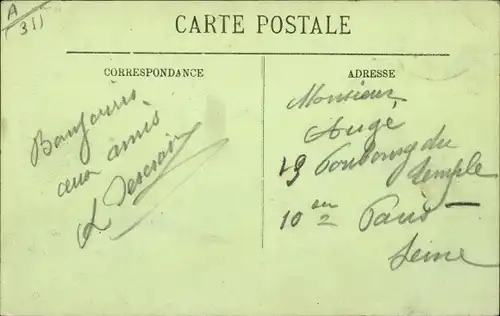 A
311
CARTE POSTALE
CORRESPONDANCE
Bonjours
aux amis
ADRESSE
Monsieur
Augé
19 Foubourg du
Temple
10 em Paris
Seine